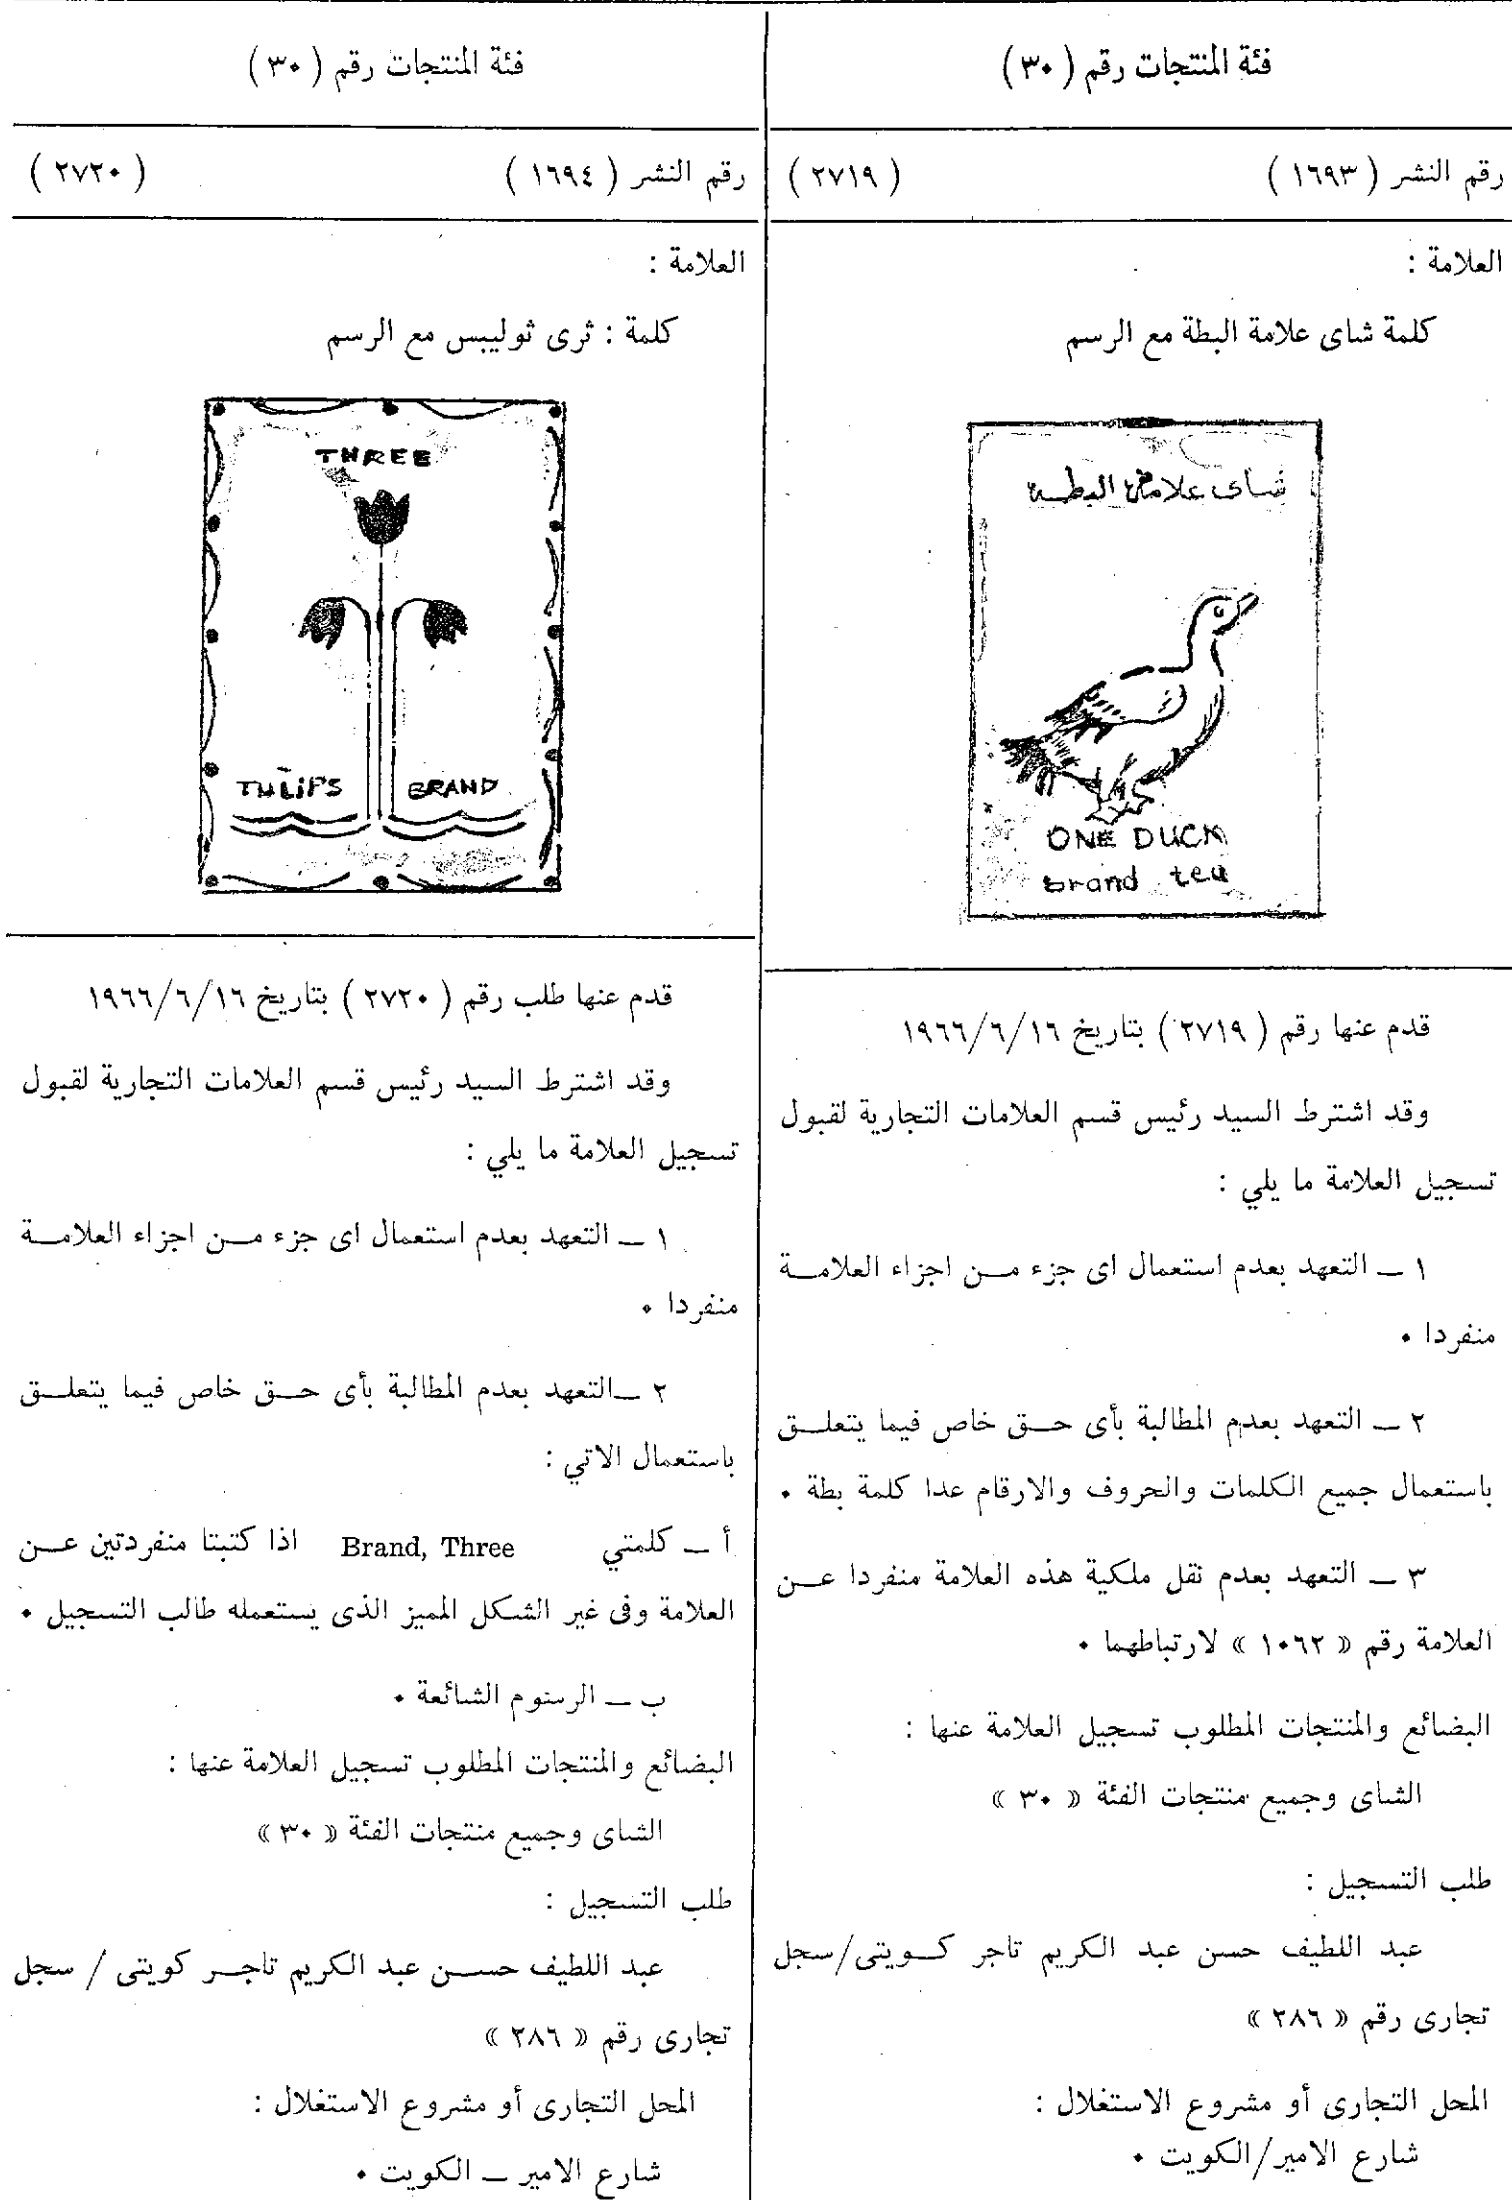 فئة المنتجات رقم ( ٣٠ )
رقم النشر ( ١٦٩٣ ) ( ٢٧١٩ )
العلامة :
كلمة شاى علامة البطة مع الرسم
شاى علامة البطة
ONE DUCK
brand tea
قدم عنها رقم ( ٢٧١٩ ) بتاريخ ١٩٦٦/٦/١٦
وقد اشترط السيد رئيس قسم العلامات التجارية لقبول
تسجيل العلامة ما يلي :
١ ــ التعهد بعدم استعمال اى جزء مــن اجزاء العلامــة
منفردا ٠
٢ ــ التعهد بعدم المطالبة بأى حــق خاص فيما يتعلــق
باستعمال جميع الكلمات والحروف والارقام عدا كلمة بطة ٠
٣ ــ التعهد بعدم نقل ملكية هذه العلامة منفردا عــن
العلامة رقم « ١٠٦٢ » لارتباطهما ٠
البضائع والمنتجات المطلوب تسجيل العلامة عنها :
الشاى وجميع منتجات الفئة « ٣٠ »
طلب التسجيل :
عبد اللطيف حسن عبد الكريم تاجر كــويتى/سجل
تجارى رقم « ٢٨٦ »
المحل التجارى أو مشروع الاستغلال :
شارع الامير/الكويت ٠
فئة المنتجات رقم ( ٣٠ )
رقم النشر ( ١٦٩٤ ) ( ٢٧٢٠ )
العلامة :
كلمة : ثرى ثوليبس مع الرسم
THREE
TULIPS BRAND
قدم عنها طلب رقم ( ٢٧٢٠ ) بتاريخ ١٩٦٦/٦/١٦
وقد اشترط السيد رئيس قسم العلامات التجارية لقبول
تسجيل العلامة ما يلي :
١ ــ التعهد بعدم استعمال اى جزء مــن اجزاء العلامــة
منفردا ٠
٢ ــالتعهد بعدم المطالبة بأى حــق خاص فيما يتعلــق
باستعمال الاتي :
أ ــ كلمتي Brand, Three اذا كتبتا منفردتين عــن
العلامة وفى غير الشكل المميز الذى يستعمله طالب التسجيل ٠
ب ــ الرسوم الشائعة ٠
البضائع والمنتجات المطلوب تسجيل العلامة عنها :
الشاى وجميع منتجات الفئة « ٣٠ »
طلب التسجيل :
عبد اللطيف حســن عبد الكريم تاجــر كويتى / سجل
تجارى رقم « ٢٨٦ »
المحل التجارى أو مشروع الاستغلال :
شارع الامير ــ الكويت ٠